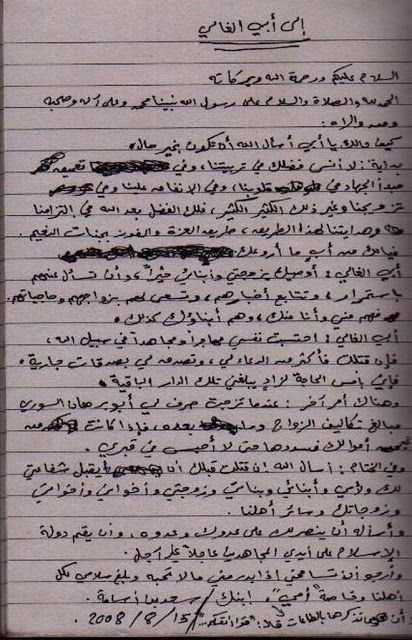 إلى أبي الغالي
السلام عليكم ورحمة الله وبركاته
الحمد لله والصلاة والسلام على رسول الله نبينا محمد وعلى آله وصحبه
ومن والاه:
كيف حالك يا أبي أسأل الله أن تكون بخير حال،
بداية: لا أنسى فضلك في تربيتنا، وفي تعميق
مبدأ الجهاد في قلوبنا، وفي الإنفاق علينا وفي
تزويجنا وغير ذلك الكثير الكثير، فلك الفضل بعد الله في التزامنا
وهدايتنا لهذا الطريق، طريق العزة والفوز بجنات النعيم.
فيالك من أب ما أروعك
أبي الغالي: أوصيك بزوجتي وأبنائي خيراً، وأن تسأل عنهم
باستمرار، وتتابع أخبارهم، وتسعى لهم بزواجهم وحاجياتهم.
فهم مني وأنا منك، وهم أبناؤك كذلك.
أبي الغالي: احتسبت نفسي مهاجراً ومجاهداً في سبيل الله،
فإن قتلت فأكثر من الدعاء لي، وتصدق لي بصدقات جارية.
فإني بأمس الحاجة لزاد يبلغني تلك الدار الباقية.
وهناك أمر آخر: عندما تزوجت صرف لي أبو برهان السوري
مبالغ تكاليف الزواج وما بعده، فإذا كانت من
أموالك فسددها حتى لا أحبس في قبري.
وفي الختام: أسأل الله إن قتلت قبلك أن يقبل شفاعتي
لك ولأمي وأبنائي وبناتي وزوجتي وأخواني وأخواتي
وزوجاتك وسائر أهلنا.
وأسأله أن ينصرك على عدوك وعدوه، وأن يقيم دولة
الإسلام على أيدي المجاهدين عاجلاً غير آجل.
وأرجو أن تسامحني إذا بدر مني ما لا تحبه وبلغ سلامي لكل
أهلنا وخاصة "أمي" ابنك / سعد بن أسامة.
2008/8/15